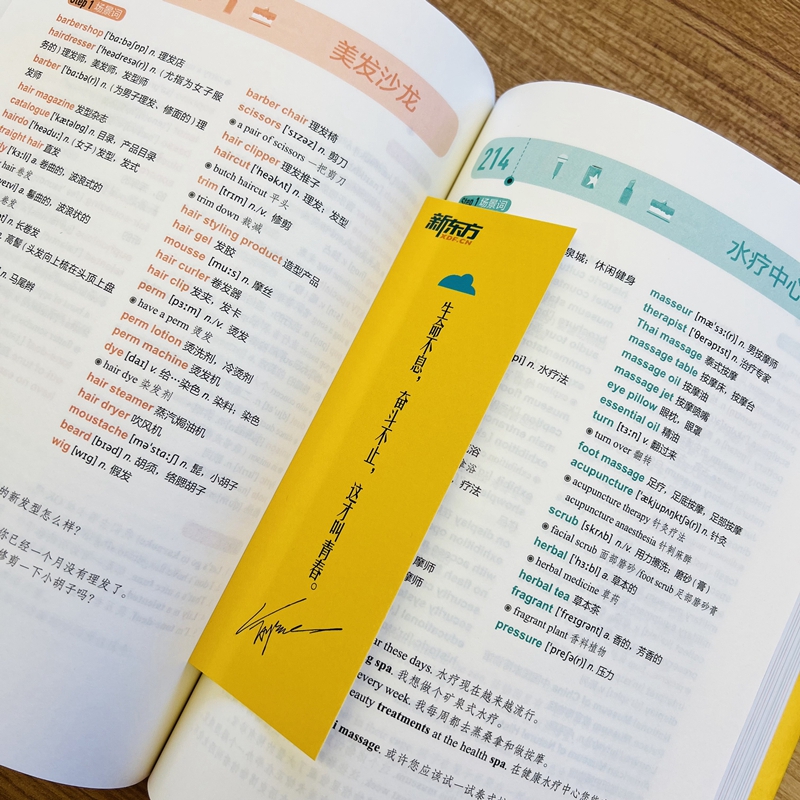 Step 1 场景词
美发沙龙
barbershop ['bɑːbəʃɒp] n. 理发店
hairdresser ['heədresə(r)] n.（尤指为女子服
务的）理发师，美发师，发型师
barber ['bɑːbə(r)] n.（为男子理发、修面的）理
发师
hair magazine 发型杂志
catalogue ['kætəlɒg] n. 目录，产品目录
hairdo ['heəduː] n.（女子）发型，发式
straight hair 直发
['kɜːli] a. 卷曲的，波浪式的
hair 卷发
a. 鬈曲的，波浪状的
卷发
n. 长卷发
n. 高髻（头发向上梳在头顶上盘
n. 马尾辫
barber chair 理发椅
scissors ['sɪzəz] n. 剪刀
a pair of scissors 一把剪刀
hair clipper 理发推子
haircut ['heəkʌt] n. 理发；发型
butch haircut 平头
trim [trɪm] n./v. 修剪
trim down 裁减
hair styling product 造型产品
hair gel 发胶
mousse [muːs] n. 摩丝
hair curler 卷发器
hair clip 发夹，发卡
perm [pɜːm] n./v. 烫发
have a perm 烫发
perm lotion 烫洗剂，冷烫剂
perm machine 烫发机
dye [daɪ] v. 给…染色 n. 染料；染色
hair dye 染发剂
hair steamer 蒸汽焗油机
hair dryer 吹风机
moustache [mə'stɑːʃ] n. 髭，小胡子
beard [bɪəd] n. 胡须，络腮胡子
wig [wɪg] n. 假发
的新发型怎么样？
你已经一个月没有理发了。
修剪一下小胡子吗？
新东方
XDF.CN
生命不息，奋斗不止，这才叫青春。
214
水疗中心
Step 1 场景词
泉城；休闲健身
n. 水疗法
浴
疗法
摩师
摩师
masseur [mæ'sɜː(r)] n. 男按摩师
therapist ['θerəpɪst] n. 治疗专家
Thai massage 泰式按摩
massage table 按摩床，按摩台
massage oil 按摩油
massage jet 按摩喷嘴
eye pillow 眼枕，眼罩
essential oil 精油
turn [tɜːn] v. 翻过来
turn over 翻转
foot massage 足疗，足底按摩，足部按摩
acupuncture ['ækjupʌŋktʃə(r)] n. 针灸
acupuncture therapy 针灸疗法
acupuncture anaesthesia 针刺麻醉
scrub [skrʌb] n./v. 用力擦洗；磨砂（膏）
facial scrub 面部磨砂 /foot scrub 足部磨砂膏
herbal ['hɜːbl] a. 草本的
herbal medicine 草药
herbal tea 草本茶
fragrant ['freɪgrənt] a. 香的，芳香的
fragrant plant 香料植物
pressure ['preʃə(r)] n. 压力
these days. 水疗现在越来越流行。
spa. 我想做个矿泉式水疗。
every week. 我每周都去蒸桑拿和做按摩。
beauty treatments at the health spa. 在健康水疗中心您
massage. 或许您应该试一试泰式